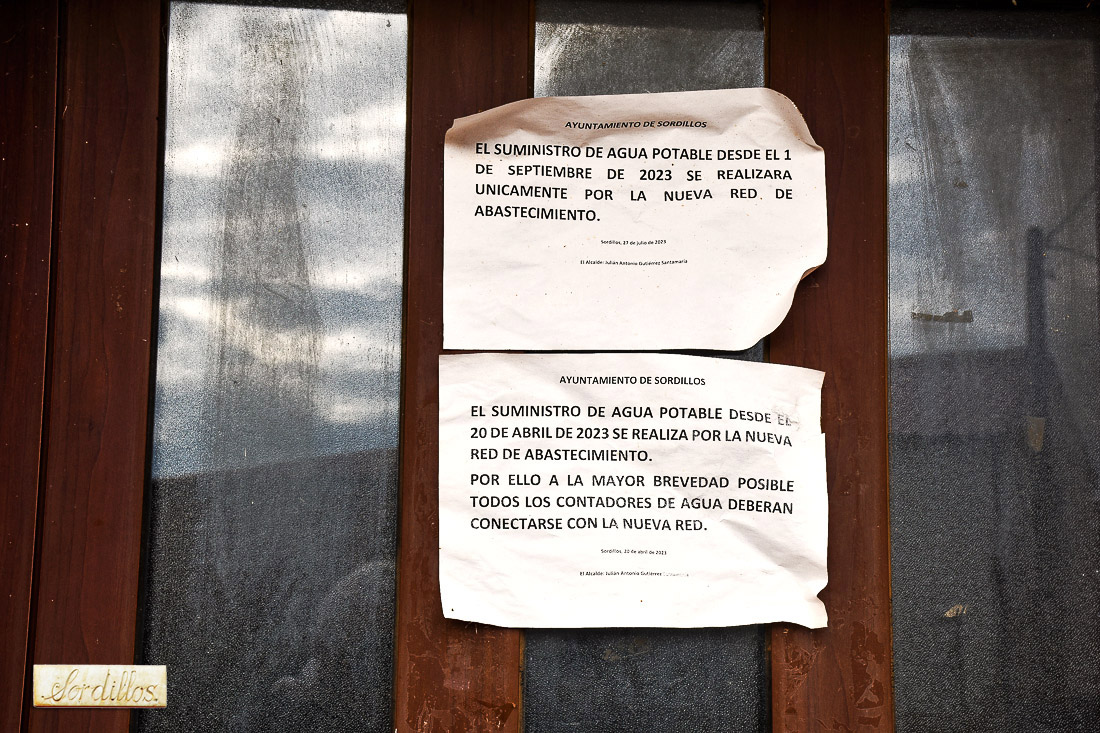 AYUNTAMIENTO DE SORDILLOS
EL SUMINISTRO DE AGUA POTABLE DESDE EL 1
DE SEPTIEMBRE DE 2023 SE REALIZARA
UNICAMENTE POR LA NUEVA RED DE
ABASTECIMIENTO.
Sordillos, 27 de julio de 2023
El Alcalde: Julian Antonio Gutiérrez Santamaría
AYUNTAMIENTO DE SORDILLOS
EL SUMINISTRO DE AGUA POTABLE DESDE EL
20 DE ABRIL DE 2023 SE REALIZA POR LA NUEVA
RED DE ABASTECIMIENTO.
POR ELLO A LA MAYOR BREVEDAD POSIBLE
TODOS LOS CONTADORES DE AGUA DEBERAN
CONECTARSE CON LA NUEVA RED.
Sordillos, 20 de abril de 2023
El Alcalde: Julian Antonio Gutiérrez
Sordillos